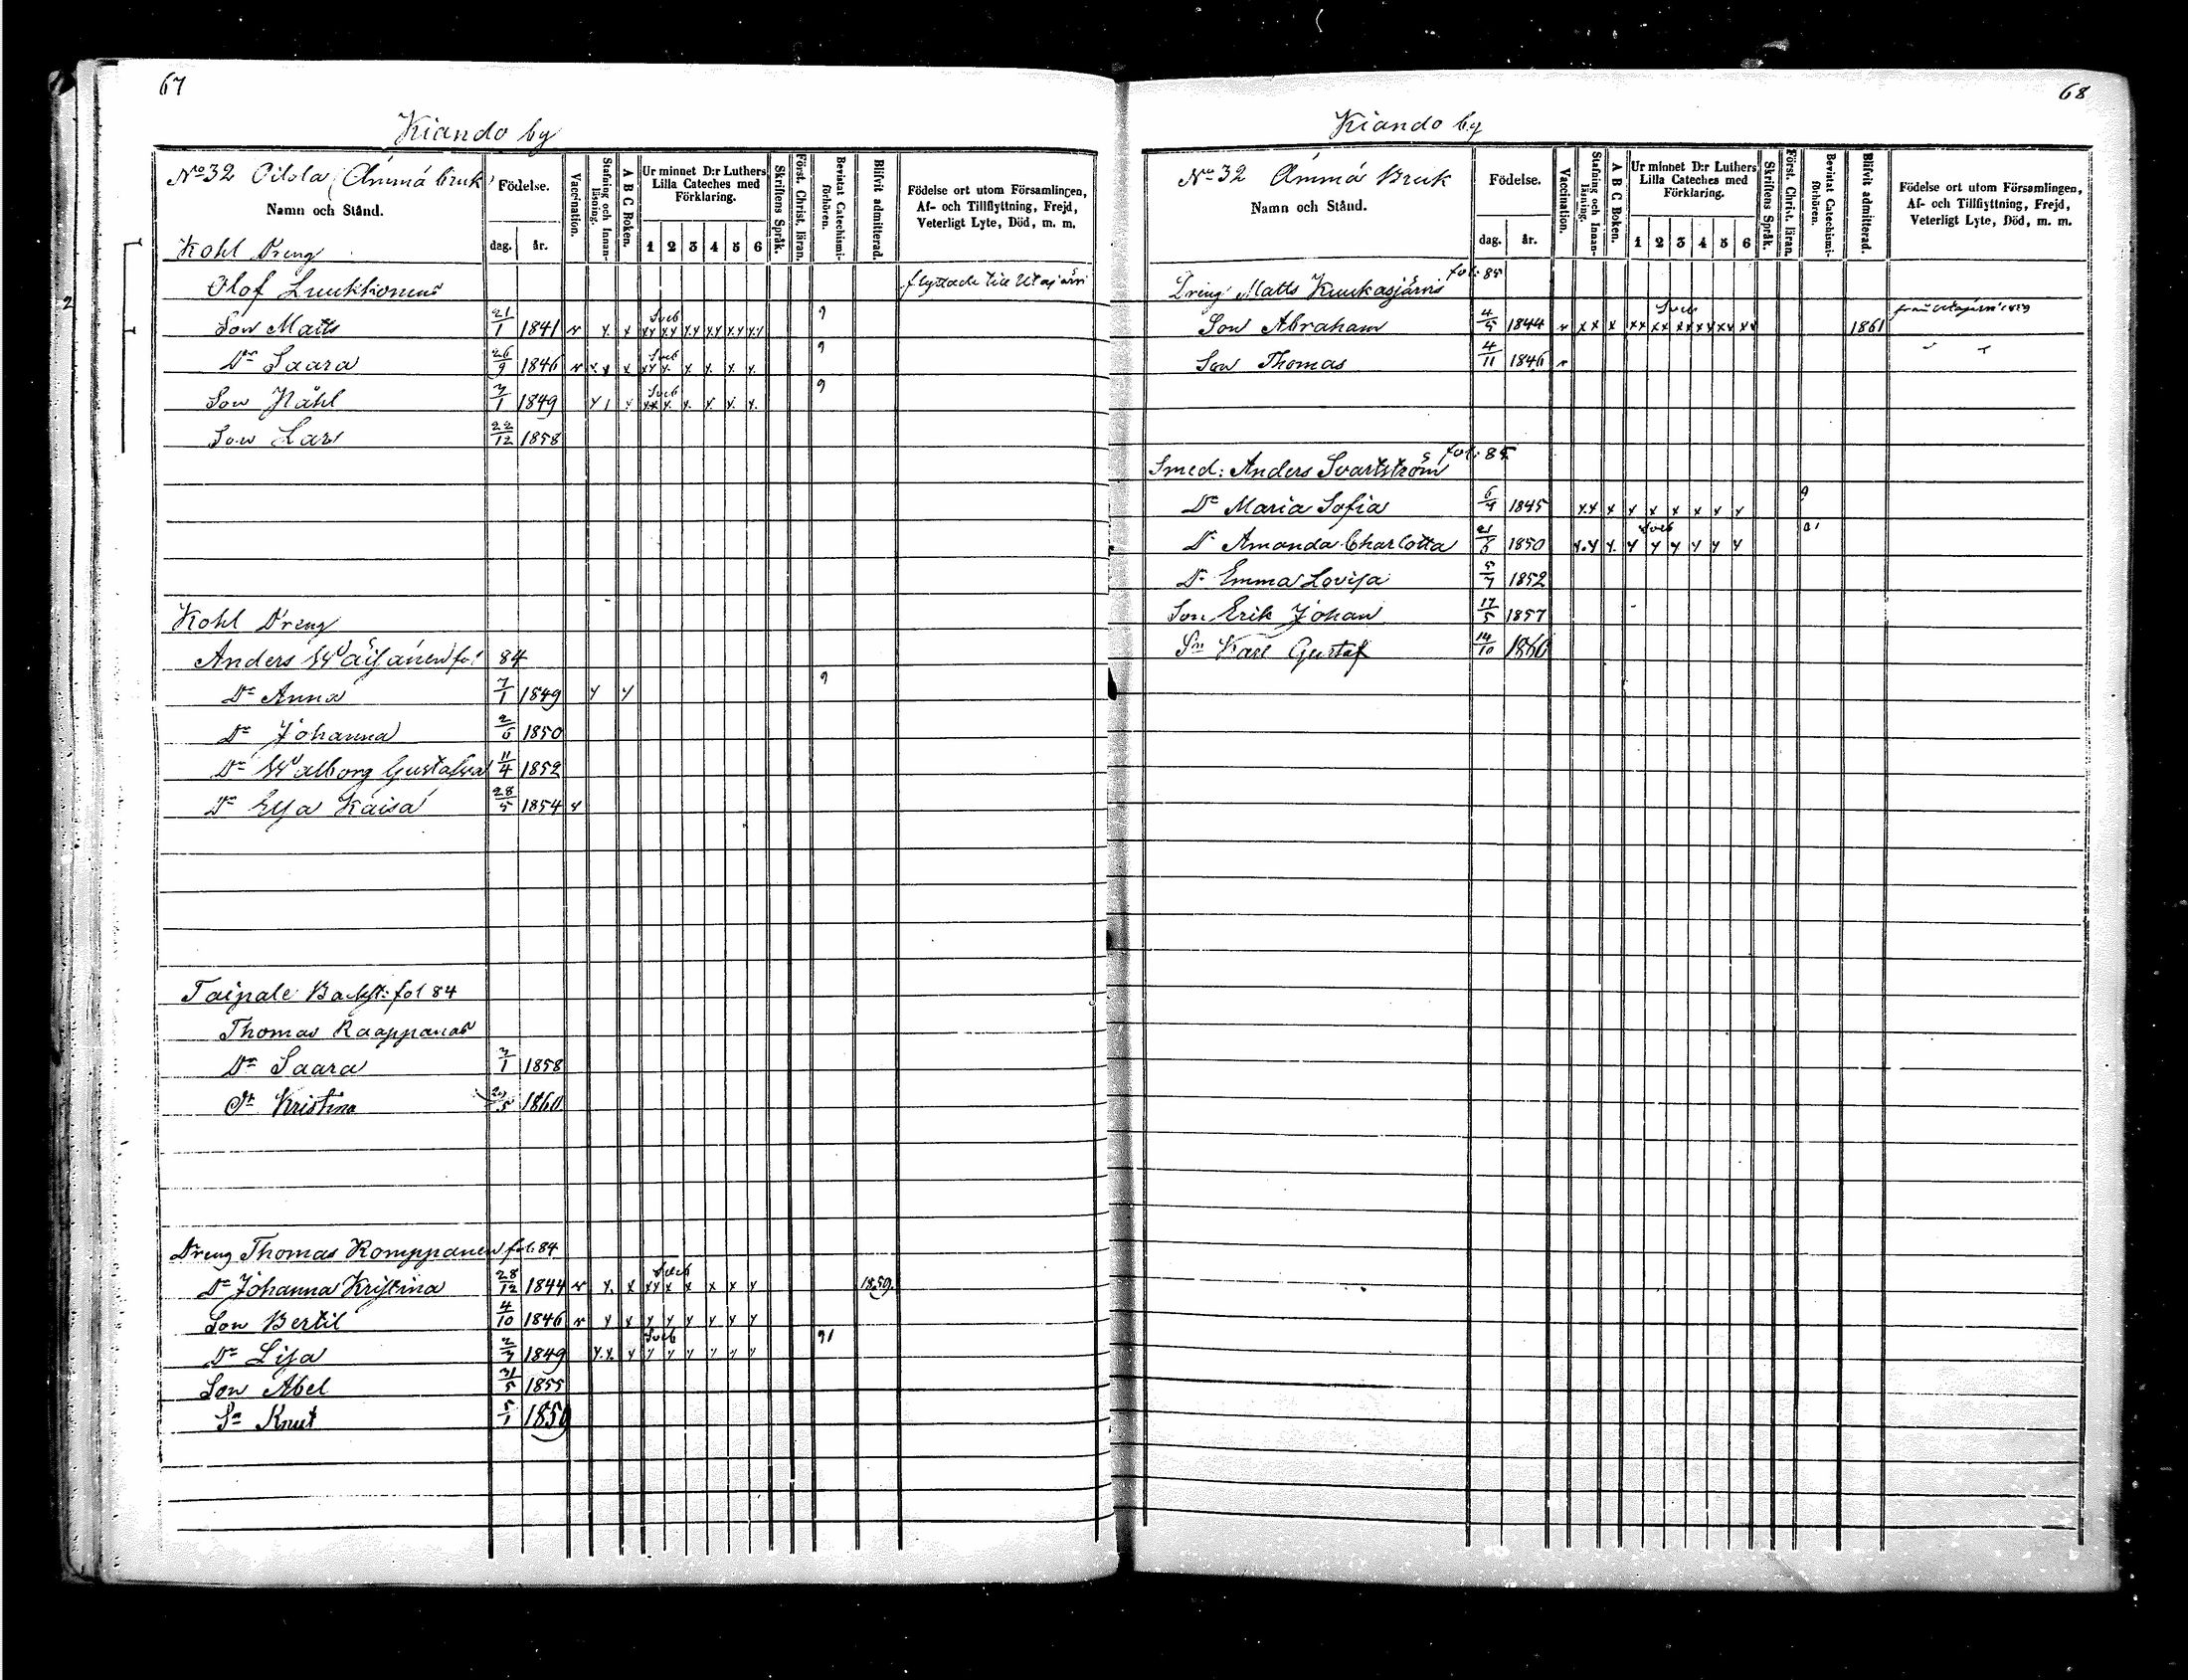 67
Kiando by
No 32 Oilola (Ämmä bruk)
Namn och Stånd.
Födelse.
dag. år.
Vaccination.
Stafning och Innan-läsning.
A B C Boken.
Ur minnet D:r Luthers Lilla Cateches med Förklaring.
1 2 3 4 5 6
Skriftens Språk.
Först. Christ. läran.
Bevistat Catechismi-förhören.
Blifvit admitterad.
Födelse ort utom Församlingen, Af- och Tillflyttning, Frejd, Veterligt Lyte, Död, m. m.
Kohl Dreng
Olof flyttade till Utajärvi
Son Matts 21/1 1841 v x x Sveb xx xx xx xx xx xx 9
Dr Saara 26/9 1846 v x x x Sveb xx x x x x x 9
Son 3/1 1849 Sveb xx x x x x x 9
Son Lars 22/12 1858
Kohl Dreng
Anders Wäisänen fol 84
Dr Anna 7/1 1849 x x 9
Dr Johanna 2/6 1850
Dr Walborg Gustafva 11/4 1852
Dr Elsa Kaisa 28/5 1854 v
Taipale Backst: fol 84
Thomas Raappana
Dr Saara 3/1 1858
Dr Kristina 1860
Dreng Thomas Komppanen fol. 84
Dr Johanna Kristina 28/12 1844 v x. x Sveb xx x x x x x 1859.
Son Bertil 4/10 1846 v x x x x x x x x
Dr Lisa 2/7 1849 x.x. x Sveb x x x x x x 91
Son Abel 31/5 1855
Sn Knut 5/1 1859
68
Kiando by
No 32 Ämmä Bruk
Namn och Stånd.
Födelse.
dag. år.
Vaccination.
Stafning och Innan-läsning.
A B C Boken.
Ur minnet D:r Luthers Lilla Cateches med Förklaring.
1 2 3 4 5 6
Skriftens Språk.
Först. Christ. läran.
Bevistat Catechismi-förhören.
Blifvit admitterad.
Födelse ort utom Församlingen, Af- och Tillflyttning, Frejd, Veterligt Lyte, Död, m. m.
Dreng Matts Kuukasjärvis fol: 85
Son Abraham 4/5 1844 v xx x Sveb xx xx xx xx xx xx 1861 från Utajärvi
Son Thomas 4/11 1846 v
Smed: Anders Svartströms fol: 85
Dr Maria Sofia 1845 xx x x x x x x x 9
Dr Amanda Charlotta 1850 x.x x. Sveb x x x x x x
Dr Emma Lovisa 5/7 1852
Son Erik Johan 17/5 1857
Sn Karl Gustaf 14/10 1860